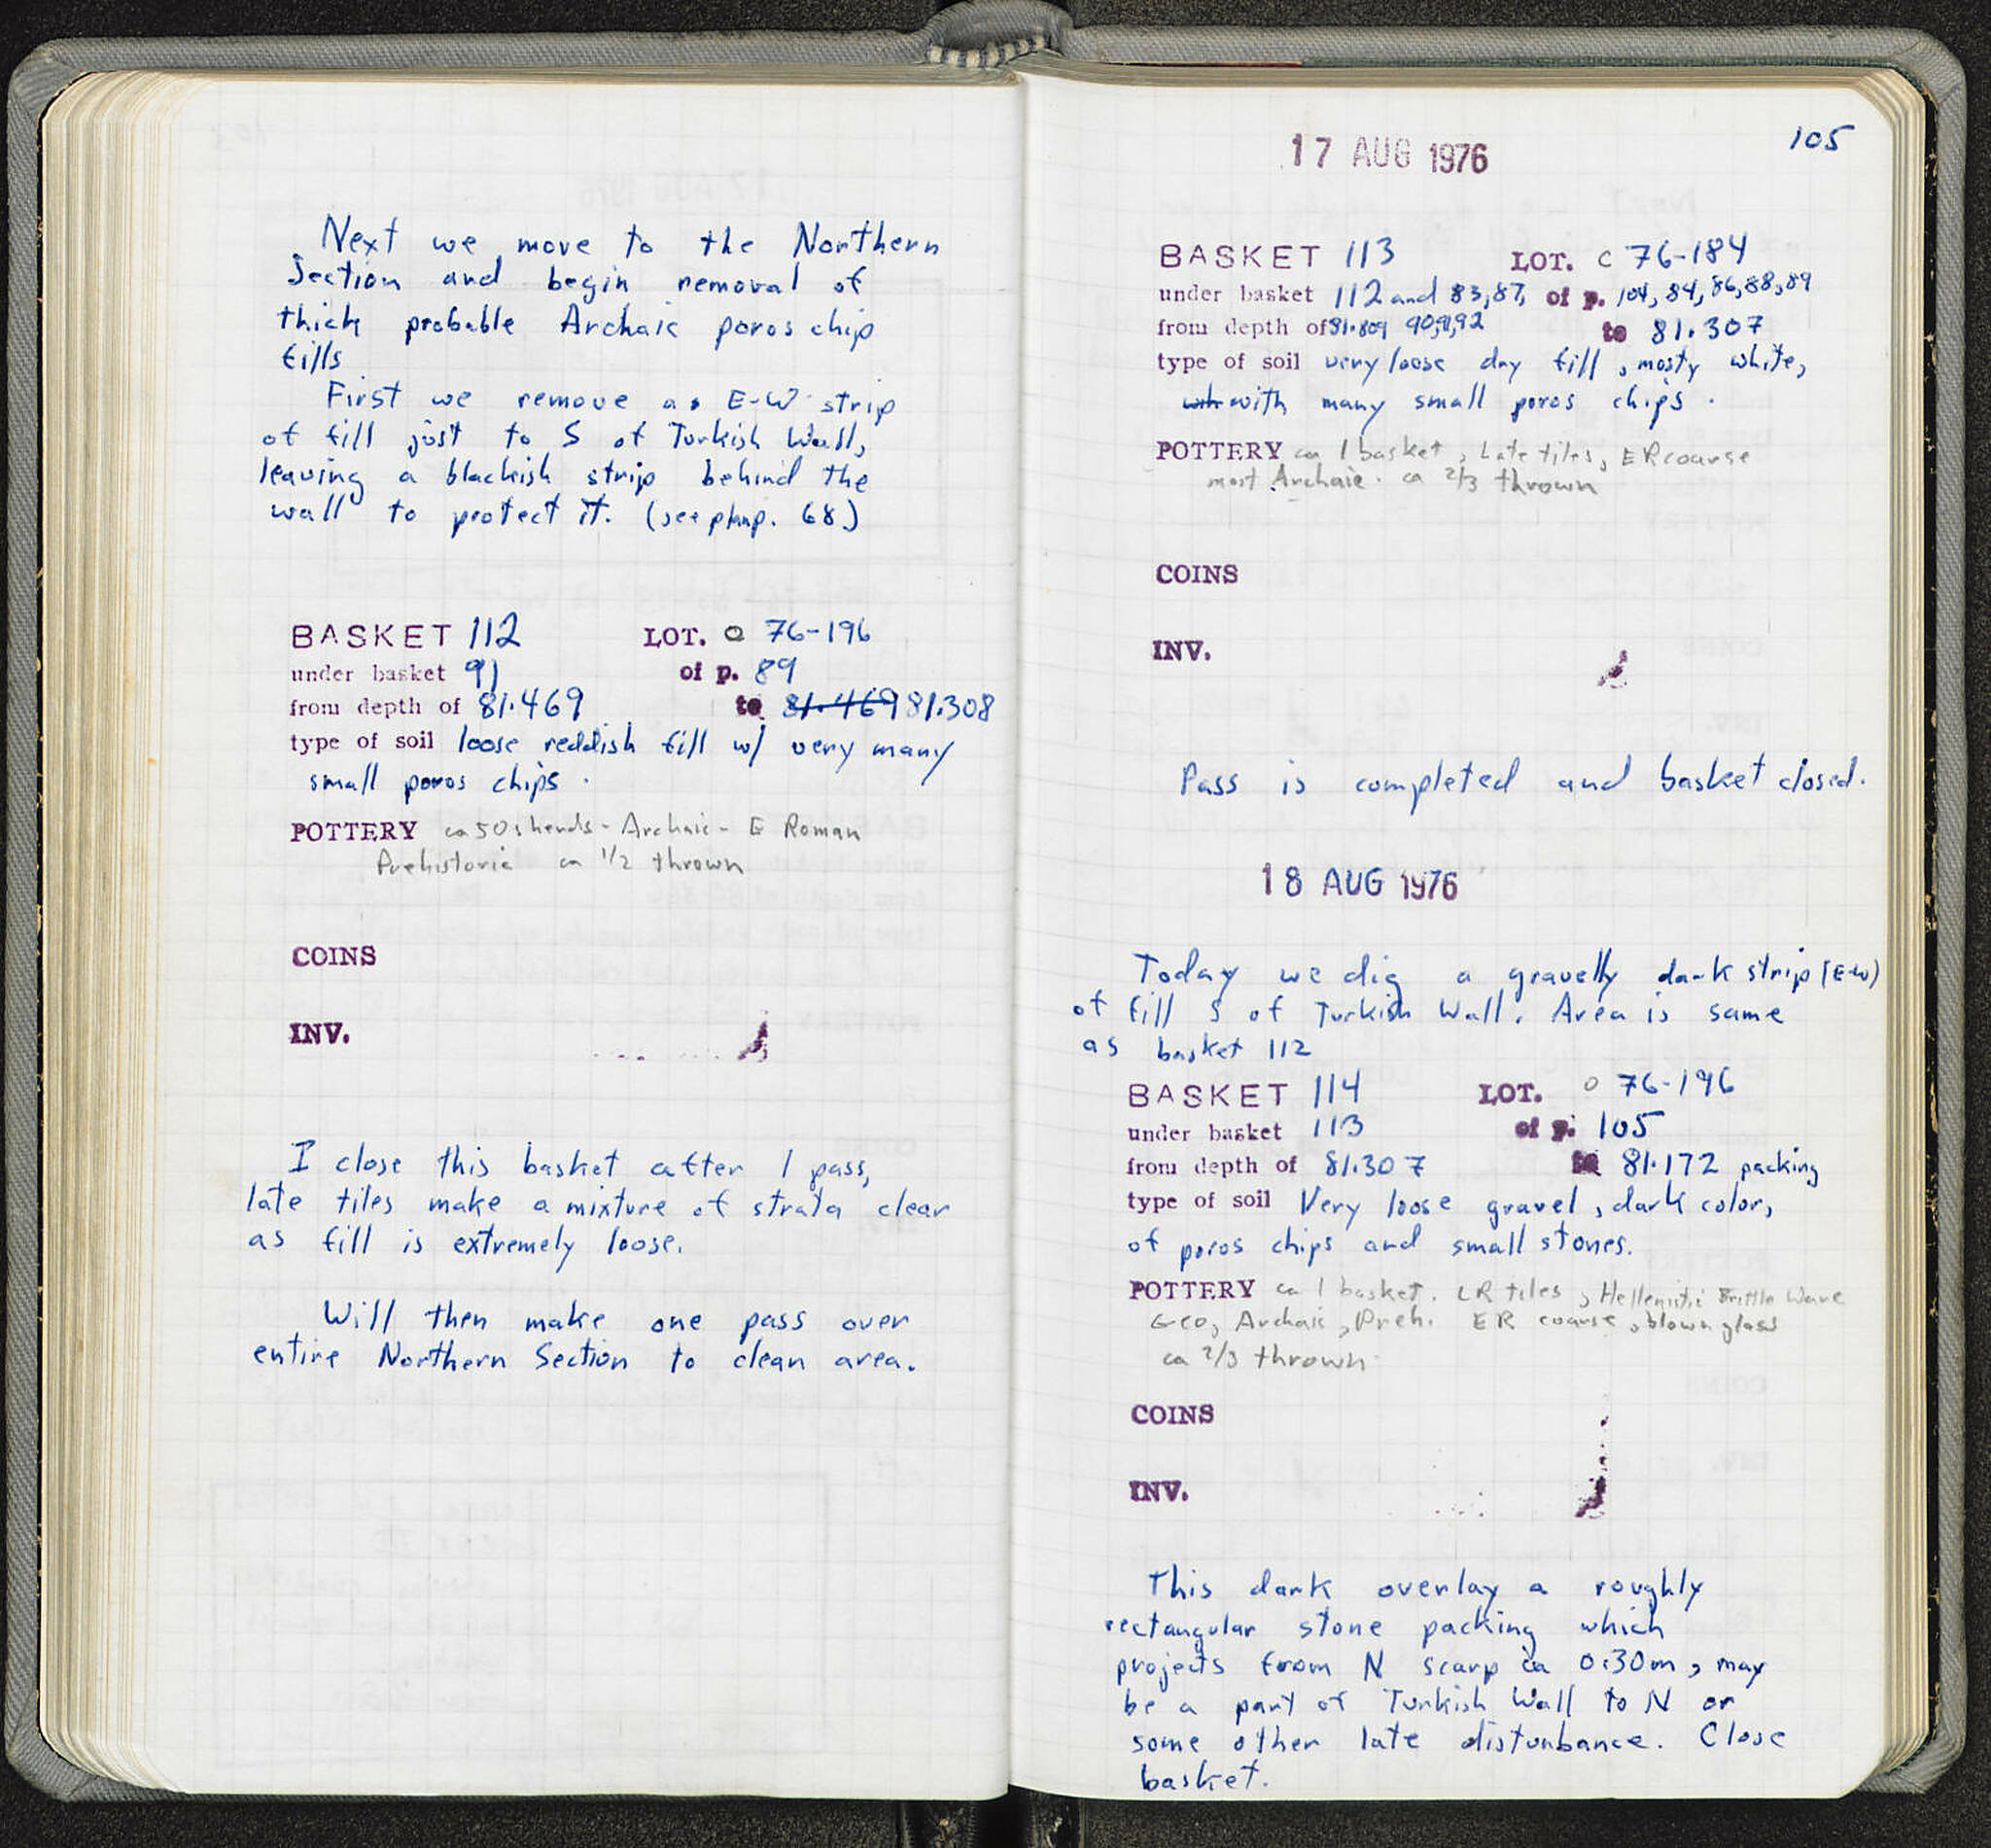 Next we move to the Northern
Section and begin removal of
thick probable Archaic poros chip
fills
First we remove a E-W strip
of fill just to S of Turkish Wall,
leaving a blackish strip behind the
wall to protect it. (see plan p. 68)
BASKET 112 LOT. 76-196
under basket 91 of p. 89
from depth of 81.469 to 81.469 81.308
type of soil loose reddish fill w/ very many
small poros chips.
POTTERY ca 50 sherds - Archaic - E Roman
Prehistoric ca 1/2 thrown
COINS
INV.
I close this basket after 1 pass,
late tiles make a mixture of strata clear
as fill is extremely loose.
Will then make one pass over
entire Northern Section to clean area.
105
17 AUG 1976
BASKET 113 LOT. C 76-184
under basket 112 and 83, 87, of p. 104, 84, 86, 88, 89
from depth of 81.809 90,91,92 to 81.307
type of soil very loose dry fill, mosty white,
with many small poros chips.
POTTERY ca 1 basket, Late tiles, ER coarse
most Archaic. ca 2/3 thrown
COINS
INV.
Pass is completed and basket closed.
18 AUG 1976
Today we dig a gravelly dark strip (E-W)
of fill S of Turkish Wall. Area is same
as basket 112
BASKET 114 LOT. 76-196
under basket 113 of p. 105
from depth of 81.307 to 81.172 packing
type of soil Very loose gravel, dark color,
of poros chips and small stones.
POTTERY ca 1 basket. LR tiles, Hellenistic Brittle Ware
Geo, Archaic, Preh. ER coarse, blown glass
ca 2/3 thrown
COINS
INV.
This dark overlay a roughly
rectangular stone packing which
projects from N scarp ca 0.30m, may
be a part of Turkish Wall to N or
some other late disturbance. Close
basket.